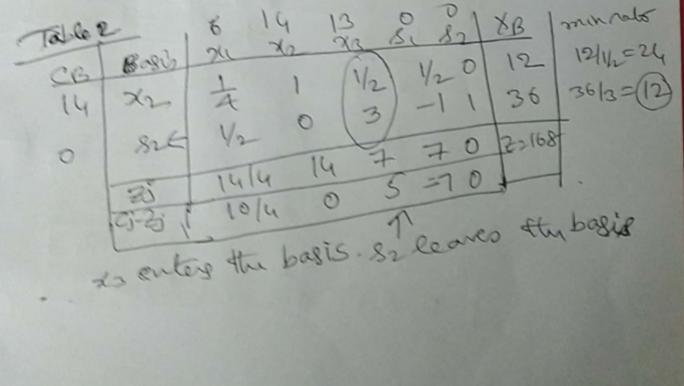 Table 2
6 14 13 0 0
CB Basis x1 x2 x3 s1 s2 XB min ratio
14 x2 1/4 1 1/2 1/2 0 12 12/1/2=24
0 s2← 1/2 0 3 -1 1 36 36/3=12
zj 14/4 14 7 7 0 Z=168
cj-zj 10/4 0 5 -7 0
↑
x3 enters the basis. s2 leaves the basis